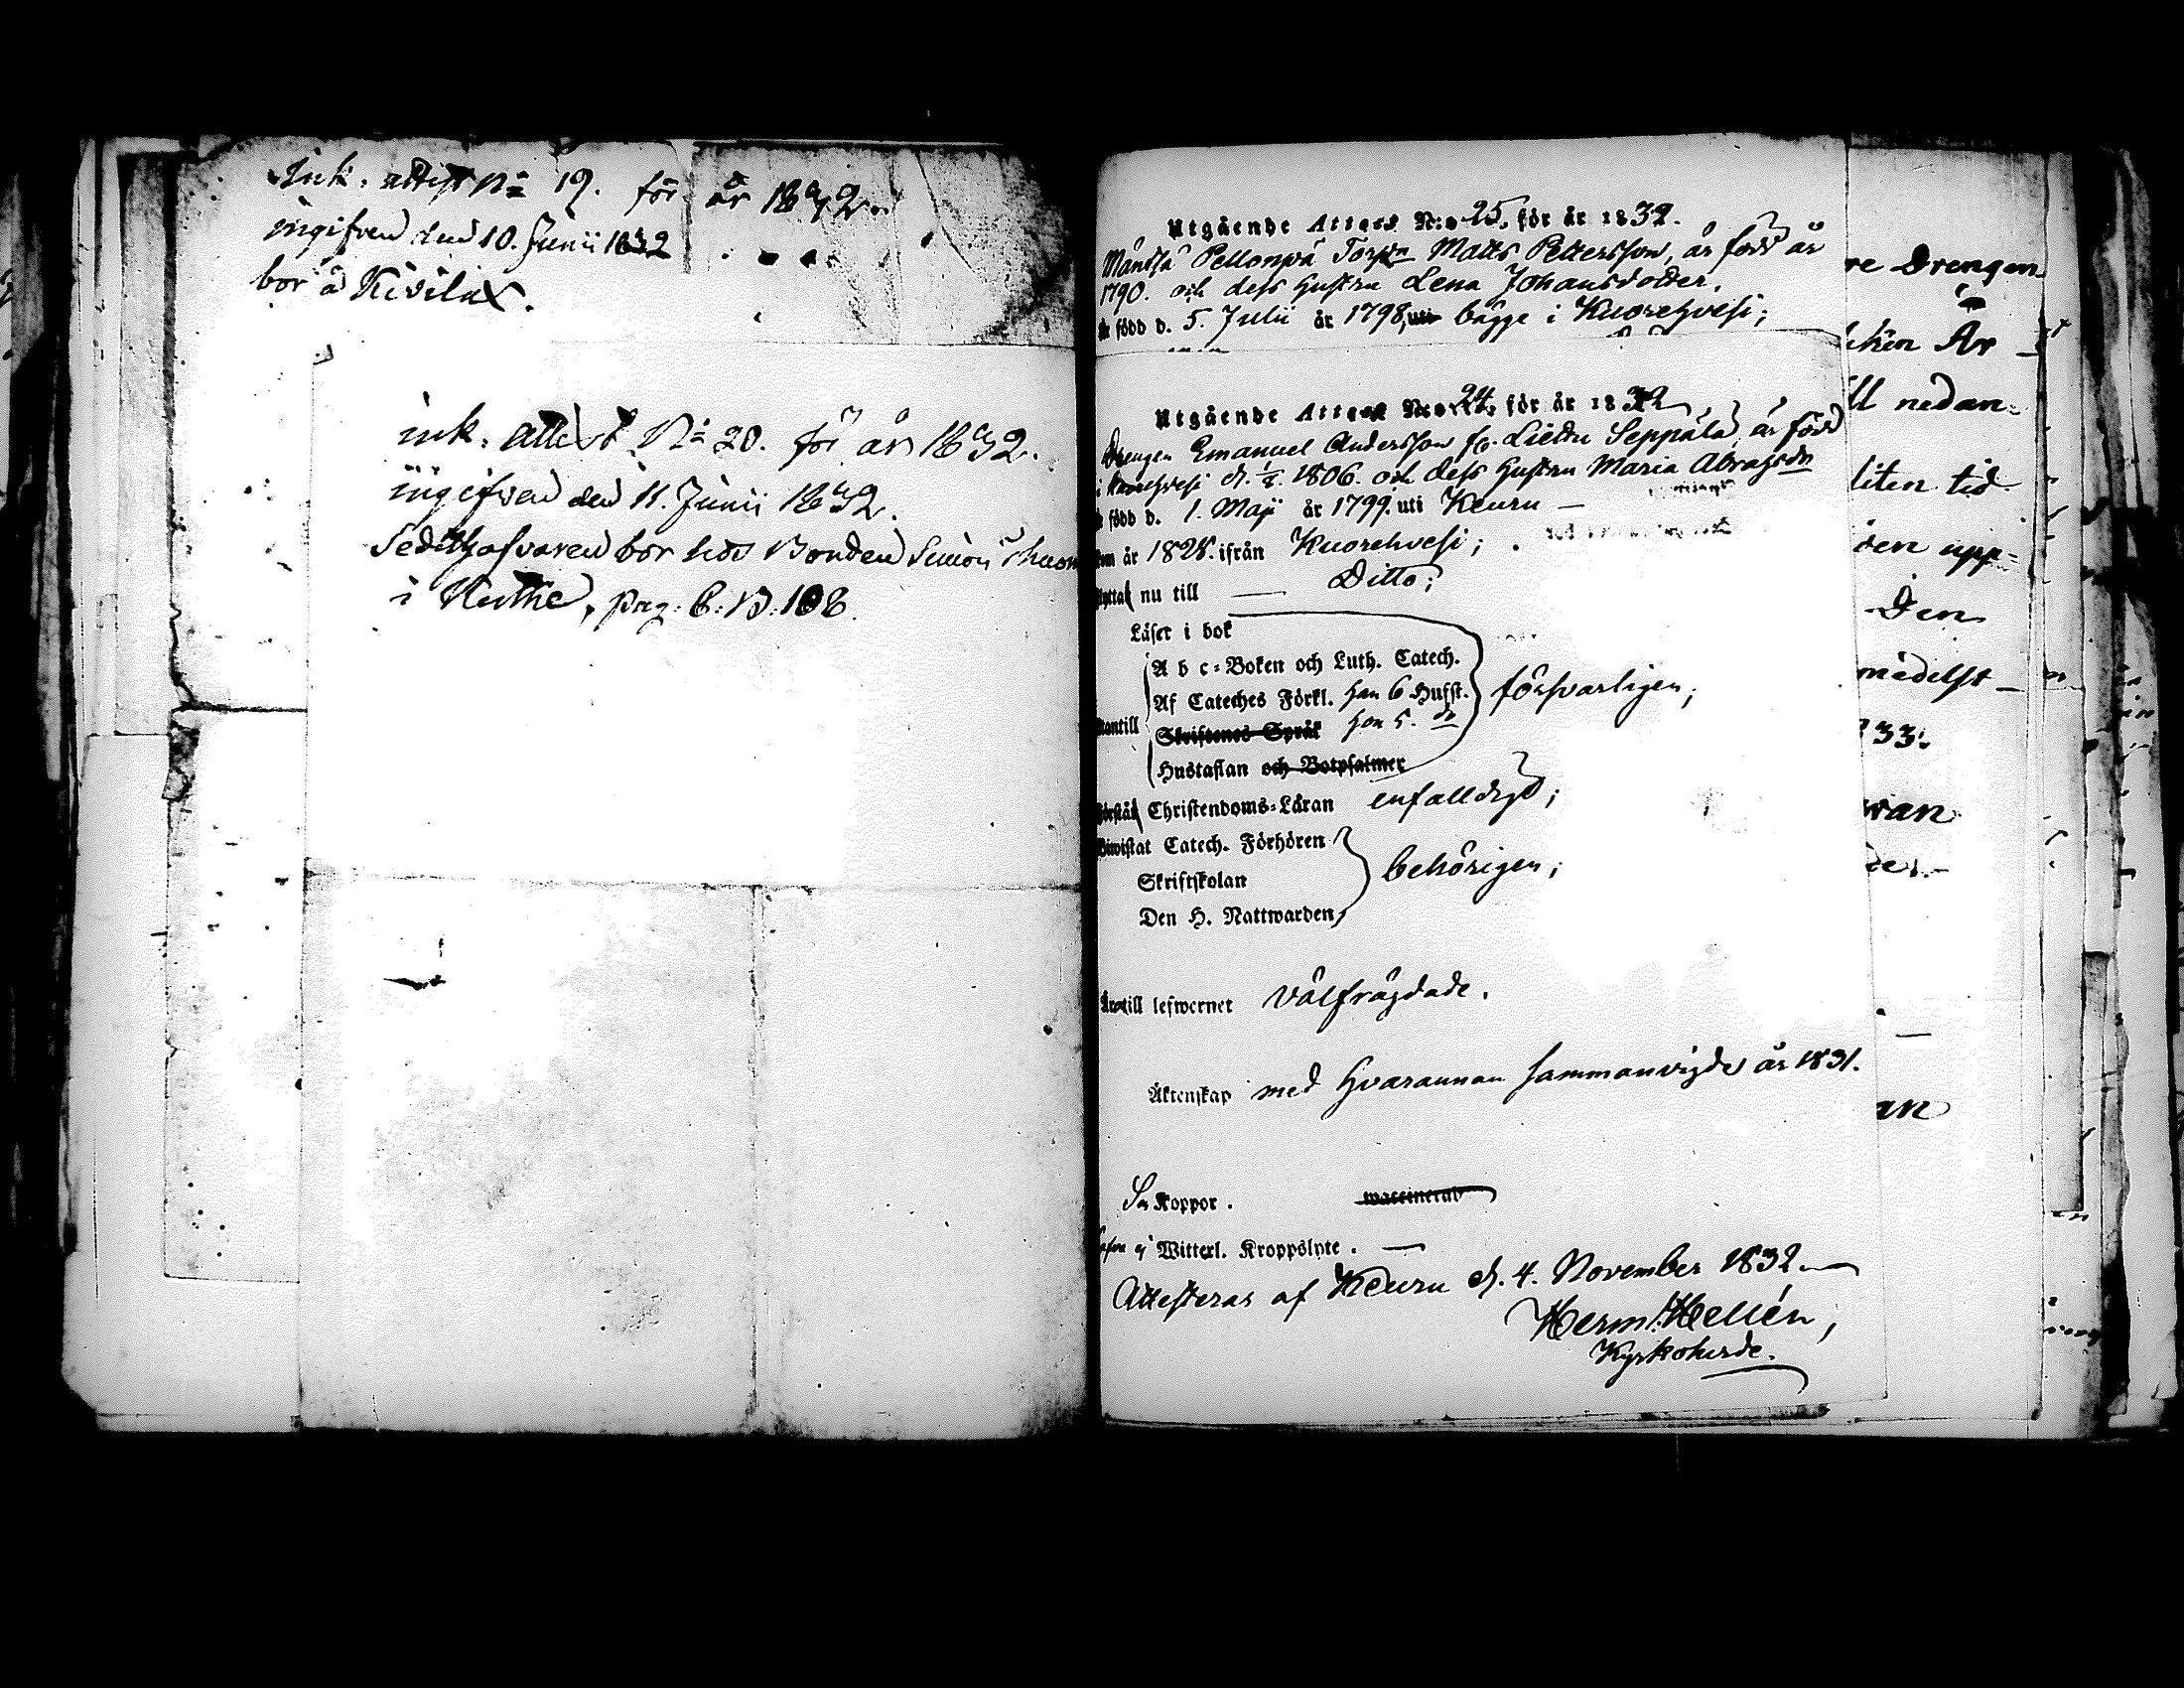 Ink. attest No 19. för år 1832.
ingifven den 10. Junii 1832
bor å Kivilax.
ink. attest No 20. för år 1832.
ingifven den 11. Junii 1832.
Sedelhafvaren bor hos Bonden Simon
i pag. C. B. 108.
Utgående Attest N:o 25. för år 1832.
Mäntsä Pellonpä Torp. Matts Pettersson, är född år
1790. och dess Hustru Lena Johansdotter,
är född d. 5. Julii år 1798, uti bägge i Kuorehvesi;
Utgående Attest N:o 24. för år 1832,
Drengen Emanuel Andersson fr. Liedu Seppälä, är född
i Kuorehvesi d. 1806. och dess Hustru Maria Abragsdr
är född d. 1. Maji år 1799. uti Keuru —
kom år 1828. ifrån Kuorehvesi;
flytta nu till — Ditto;
Läser i bok
A b c-Boken och Luth. Catech.
Af Cateches Förkl. han 6 Hufst. försvarligen;
utantill Skriftenes Språk hon 5. do
Hustaflan och Botpsalmer
Förstå Christendoms-Läran enfalldigt;
Biwistat Catech. Förhören
Skriftskolan behörigen;
Den H. Nattwarden,
Äro till lefwernet välfrägdade.
Äktenskap med hvarannan sammanvigde år 1831.
Koppor. waccinerad
hafva ej Witterl. Kroppslyte. —
Attesteras af Keuru d. 4. November 1832.
Herm. Hellén,
Kyrkoherde.
re Drengen
ken År
ll nedan-
liten tid
den upp-
Den
medelst
33.
van
de.
an